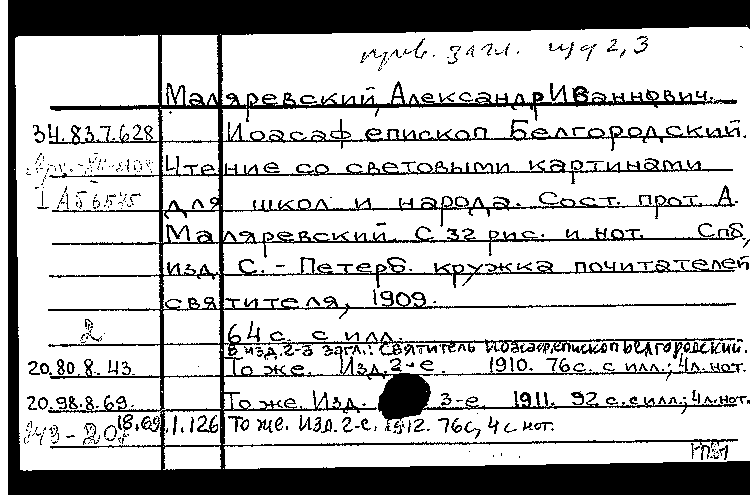 прив. загл. изд 2, 3
Маляревский, Александр Иваннович.
34.83.7.628 Иоасаф епископ Белгородский.
Чтение со световыми картинами
I АБ 6575 для школ и народа. Сост. прот. А.
Маляревский С 32 рис. и нот. Спб,
изд. С.-Петерб. кружка почитателей
святителя, 1909.
2 64 с. с илл.
В изд. 2-3 загл.: Святитель Иоасаф, епископ Белгородский.
20.80.8.43. То же. Изд. 2-е. 1910. 76 с. с илл.; 4 л. нот.
20.98.8.69. То же. Изд. 3-е 1911. 92 с. с илл.; 4 л. нот.
18.69.1.126 То же. Изд. 2-е. 1912. 76 с, 4 с нот.